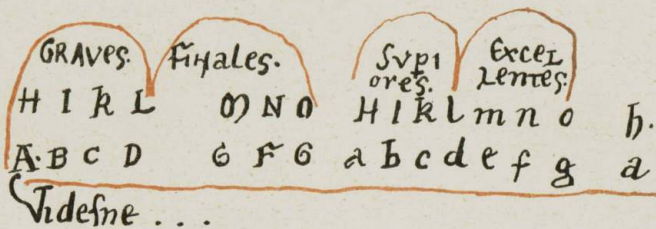 GRAVES. FINALES. SVPI EXCEL
ORES. LENTES.
H I K L M N O H I K l m n o h.
A. B C D E F G a b c d e f g a
Videsne . . .